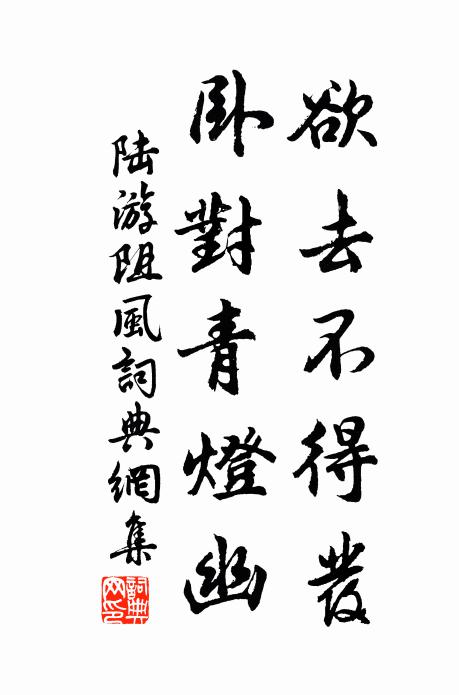 欲去不得發
卧對青燈幽
陆游阻風詞典網集
詞典网印